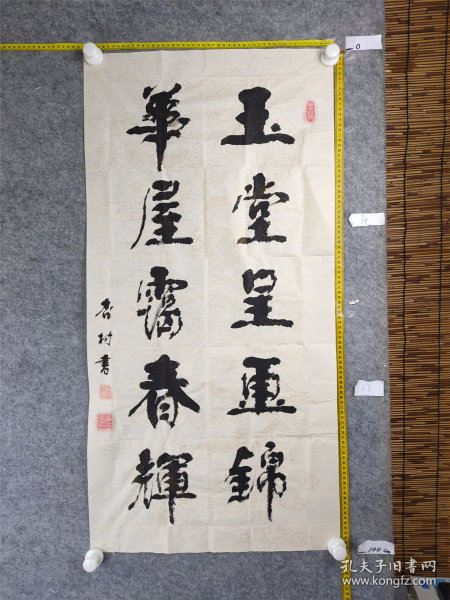 玉堂呈更锦
華屋露春輝
杏村書
0
100cm
孔夫子旧书网
www.kongfz.com